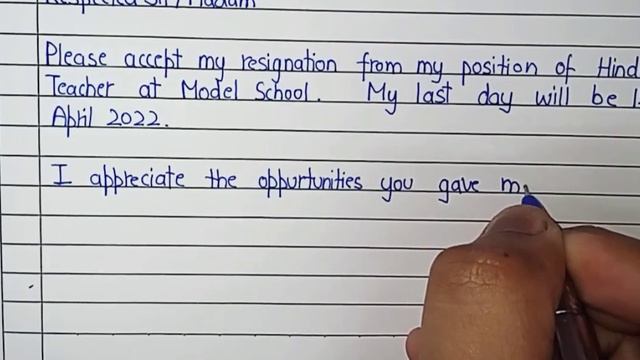 Respected Sir / Madam
Please accept my resignation from my position of Hind
Teacher at Model School. My last day will be
April 2022.
I appreciate the oppurtunities you gave m